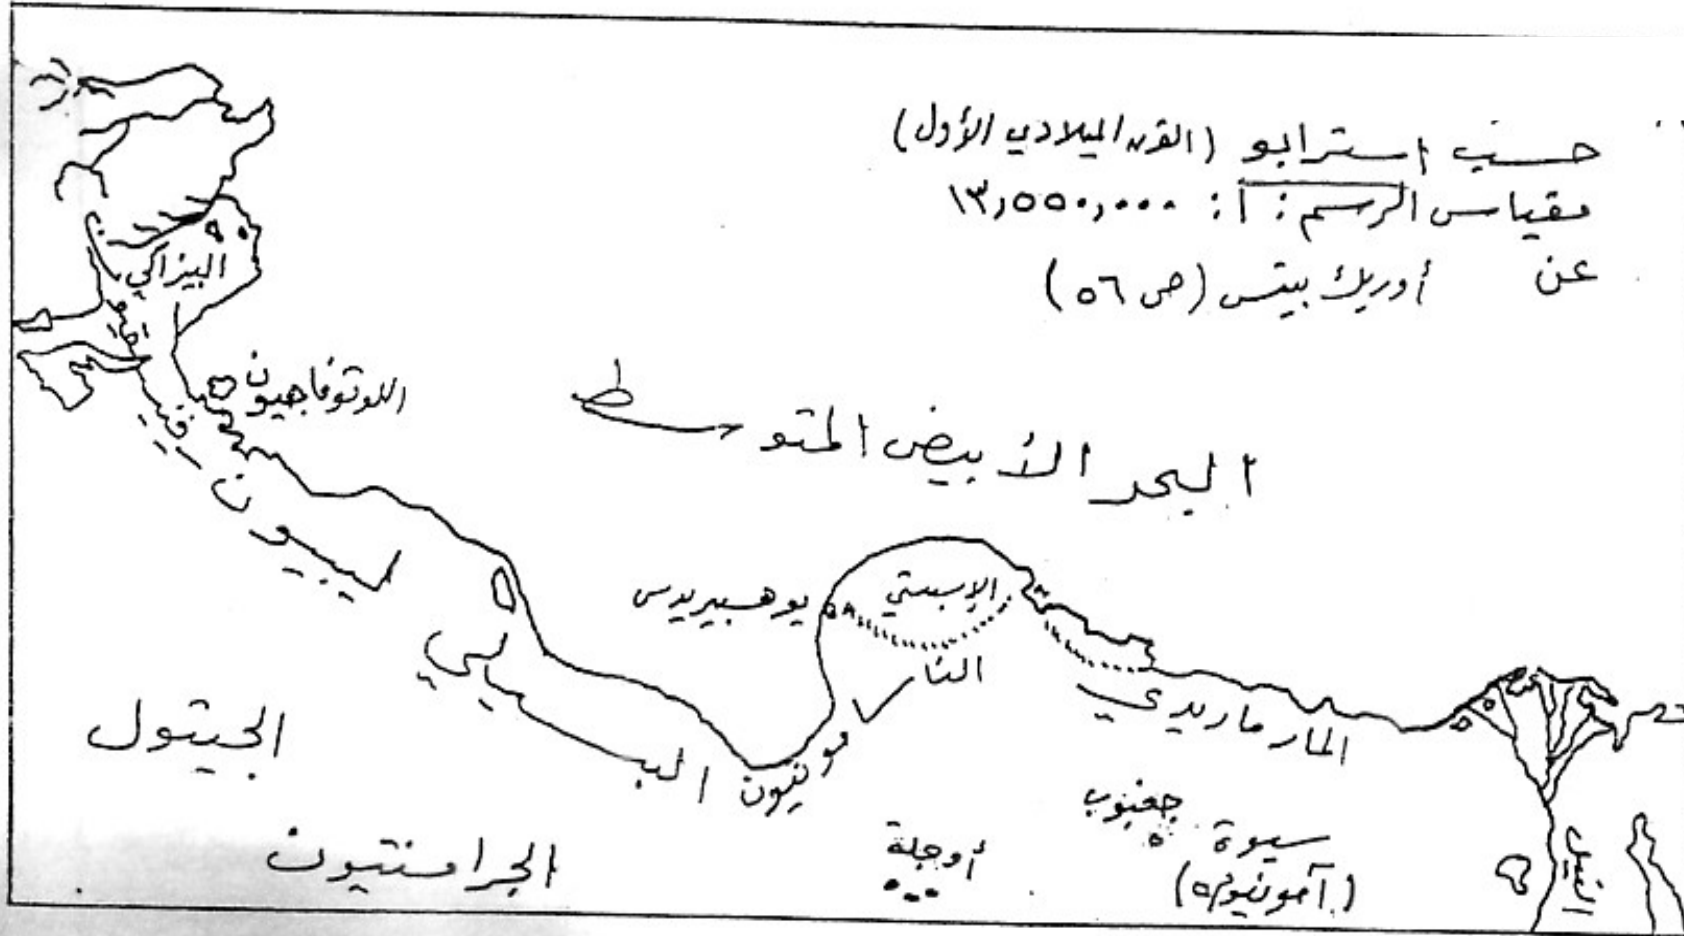 حسب استرابو (القرن الميلادي الأول)
مقياس الرسم: ١: ١٣,٥٥٠,٠٠٠
عن أوريك بيتس (ص ٥٦)
البيزاكي
اللوتوفاجيون
البحر الأبيض المتوسط
ليبيون فـ
يوهسبيريدس
الإسبستي
النا سـ مونيون
البسـيـلـلي
المارماريدي
الجيتول
الجرامنتيون
أوجلة
جغبوب
سيوة
(آمونيوم)
النيل